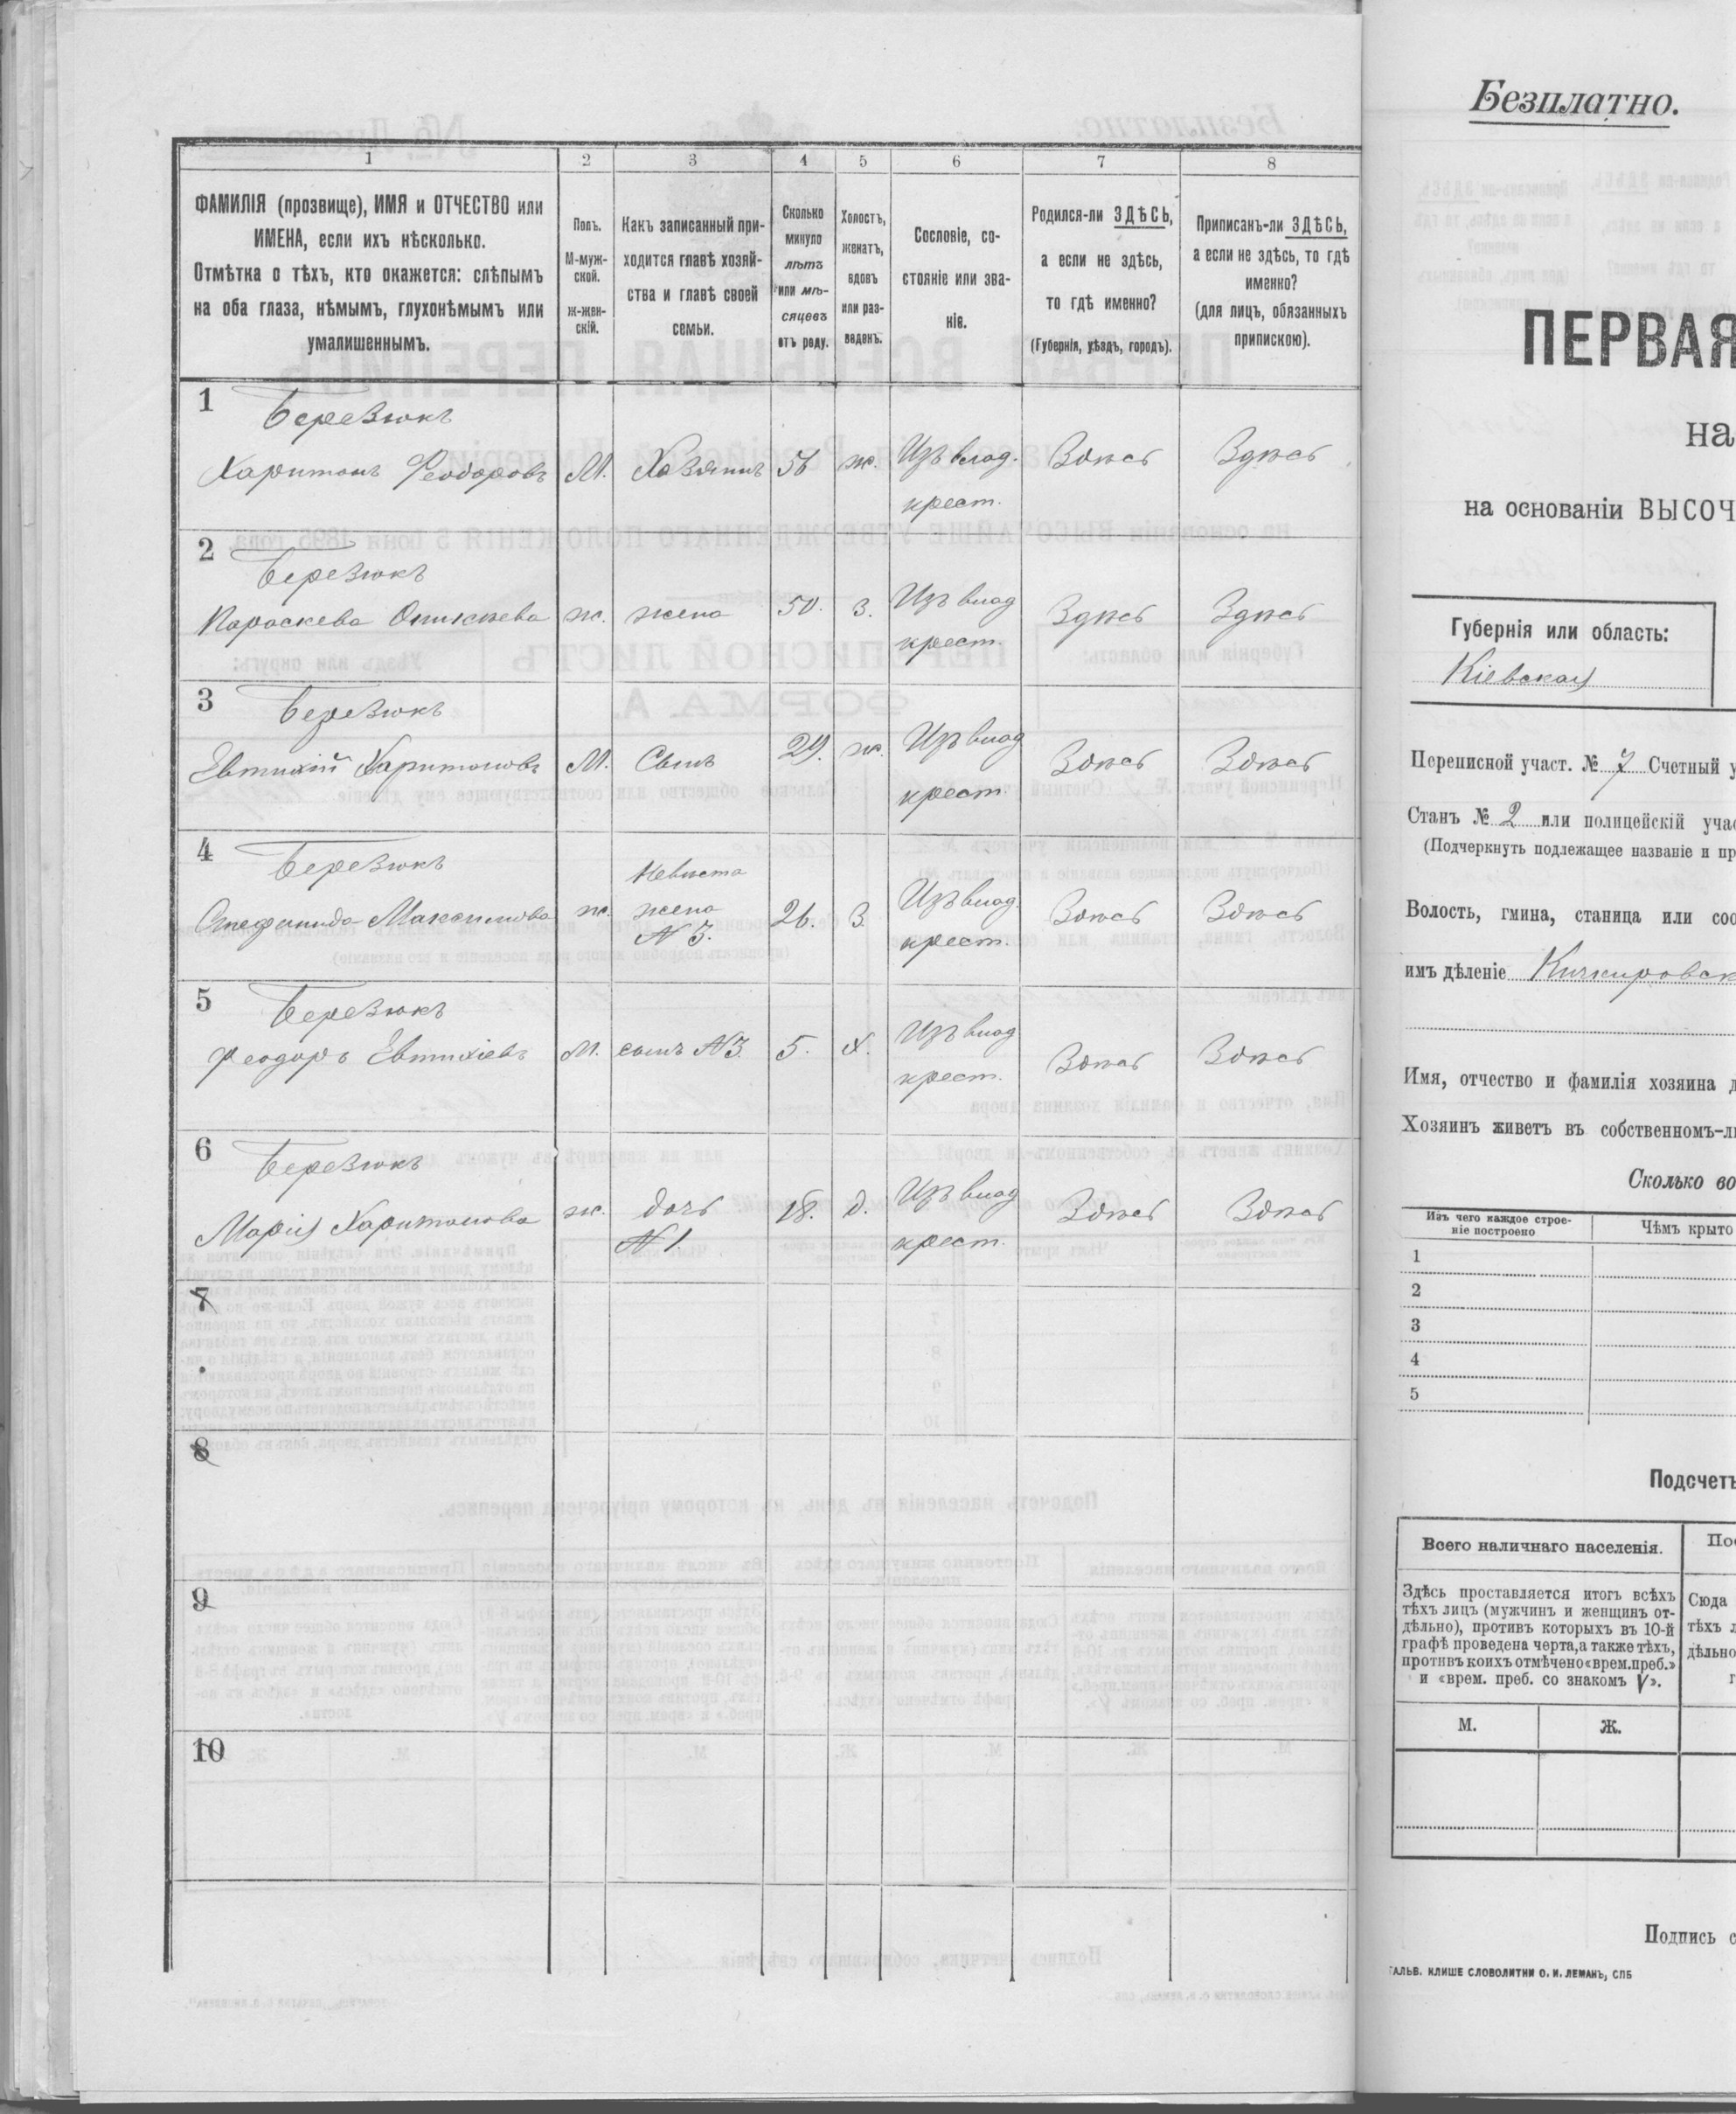 1 2 3 4 5 6 7 8
ФАМИЛІЯ (прозвище), ИМЯ и ОТЧЕСТВО или
ИМЕНА, если ихъ нѣсколько.
Отмѣтка о тѣхъ, кто окажется: слѣпымъ
на оба глаза, нѣмымъ, глухонѣмымъ или
умалишеннымъ.
Полъ.
М-муж-
ской.
Ж-жен-
скій.
Какъ записанный при-
ходится главѣ хозяй-
ства и главѣ своей
семьи.
Сколько
минуло
лѣтъ
или мѣ-
сяцевъ
отъ роду.
Холостъ,
женатъ,
вдовъ
или раз-
веденъ.
Сословіе, со-
стояніе или зва-
ніе.
Родился-ли ЗДѢСЬ,
а если не здѣсь,
то гдѣ именно?
(Губернія, уѣздъ, городъ).
Приписанъ-ли ЗДѢСЬ,
а если не здѣсь, то гдѣ
именно?
(для лицъ, обязанныхъ
припискою).
1 Березюкъ
Харитонъ Ѳеодоровъ М. Хозяинъ 56 ж. Изъ влад. Здѣсь Здѣсь
крест.
2 Березюкъ
Параскева ж. жена 50. З. Изъ влад Здѣсь Здѣсь
крест.
3 Березюкъ
Евтихій Харитоновъ М. Сынъ 29. ж. Изъ влад Здѣсь Здѣсь
крест.
4 Березюкъ Невѣста
Стефанида Максимова ж. жена 26. З. Изъ влад. Здѣсь Здѣсь
N 3. крест.
5 Березюкъ
Ѳеодоръ Евтихіевъ М. сынъ N3. 5. Х. Изъ влад Здѣсь Здѣсь
крест.
6 Березюкъ
Марія Харитонова ж. дочь 18. д. Изъ влад Здѣсь Здѣсь
N 1 крест.
7
8
9
10
Безплатно.
ПЕРВАЯ
на
на основаніи ВЫСОЧ
Губернія или область:
Кіевская
Переписной участ. № 7 Счетный у
Станъ № 2 или полицейскій учас
(Подчеркнуть подлежащее названіе и пр
Волость, гмина, станица или соо
имъ дѣленіе Кичкировск
Имя, отчество и фамилія хозяина д
Хозяинъ живетъ въ собственномъ-ли
Сколько во
Изъ чего каждое строе-
ніе построено
Чѣмъ крыто
1
2
3
4
5
Подсчетъ
Всего наличнаго населенія. Пос
Здѣсь проставляется итогъ всѣхъ
тѣхъ лицъ (мужчинъ и женщинъ от-
дѣльно), противъ которыхъ въ 10-й
графѣ проведена черта, а также тѣхъ,
противъ коихъ отмѣчено «врем. преб.»
и «врем. преб. со знакомъ V».
Сюда
тѣхъ л
дѣльно
г
М. Ж.
Подпись с
ГАЛЬВ. КЛИШЕ СЛОВОЛИТНИ О. И. ЛЕМАНЪ, СПБ